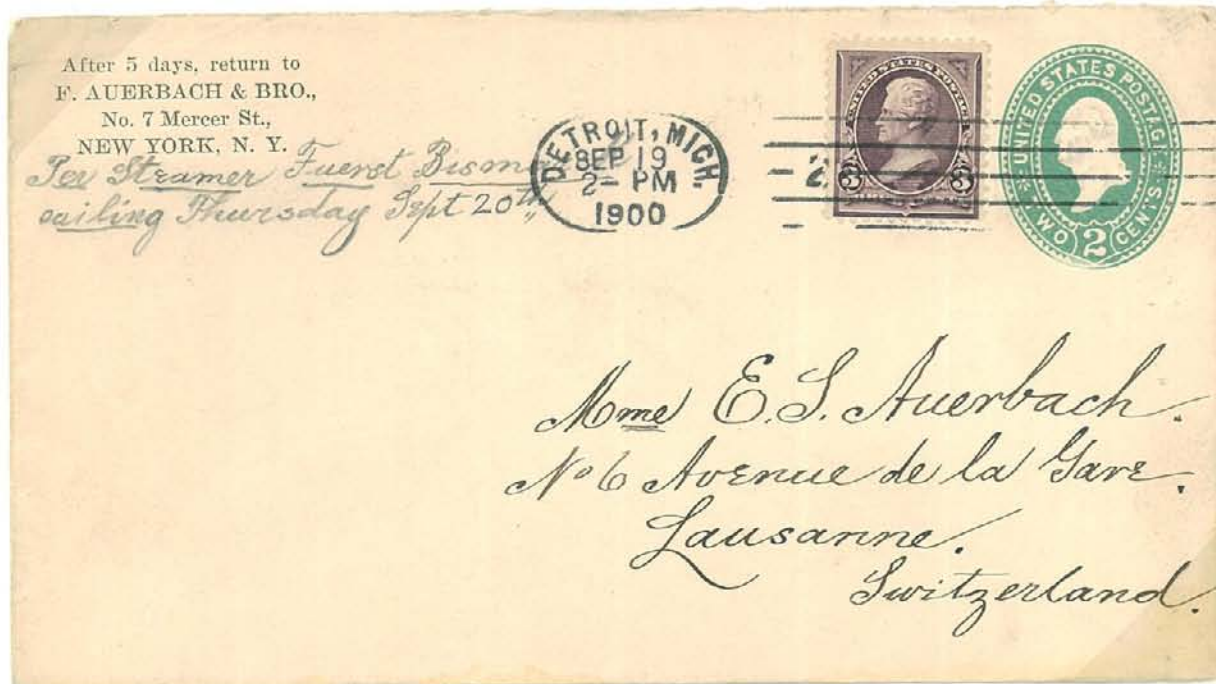 After 5 days, return to
F. AUERBACH & BRO.,
No. 7 Mercer St.,
NEW YORK, N. Y.
Per Steamer Fuerst Bism
sailing Thursday Sept 20th
DETROIT, MICH.
SEP 19
2- PM
1900
2
UNITED STATES POSTAGE
3 3
UNITED STATES POSTAGE
TWO 2 CENTS
Mme E. S. Auerbach.
No 6 Avenue de la Gare.
Lausanne.
Switzerland.